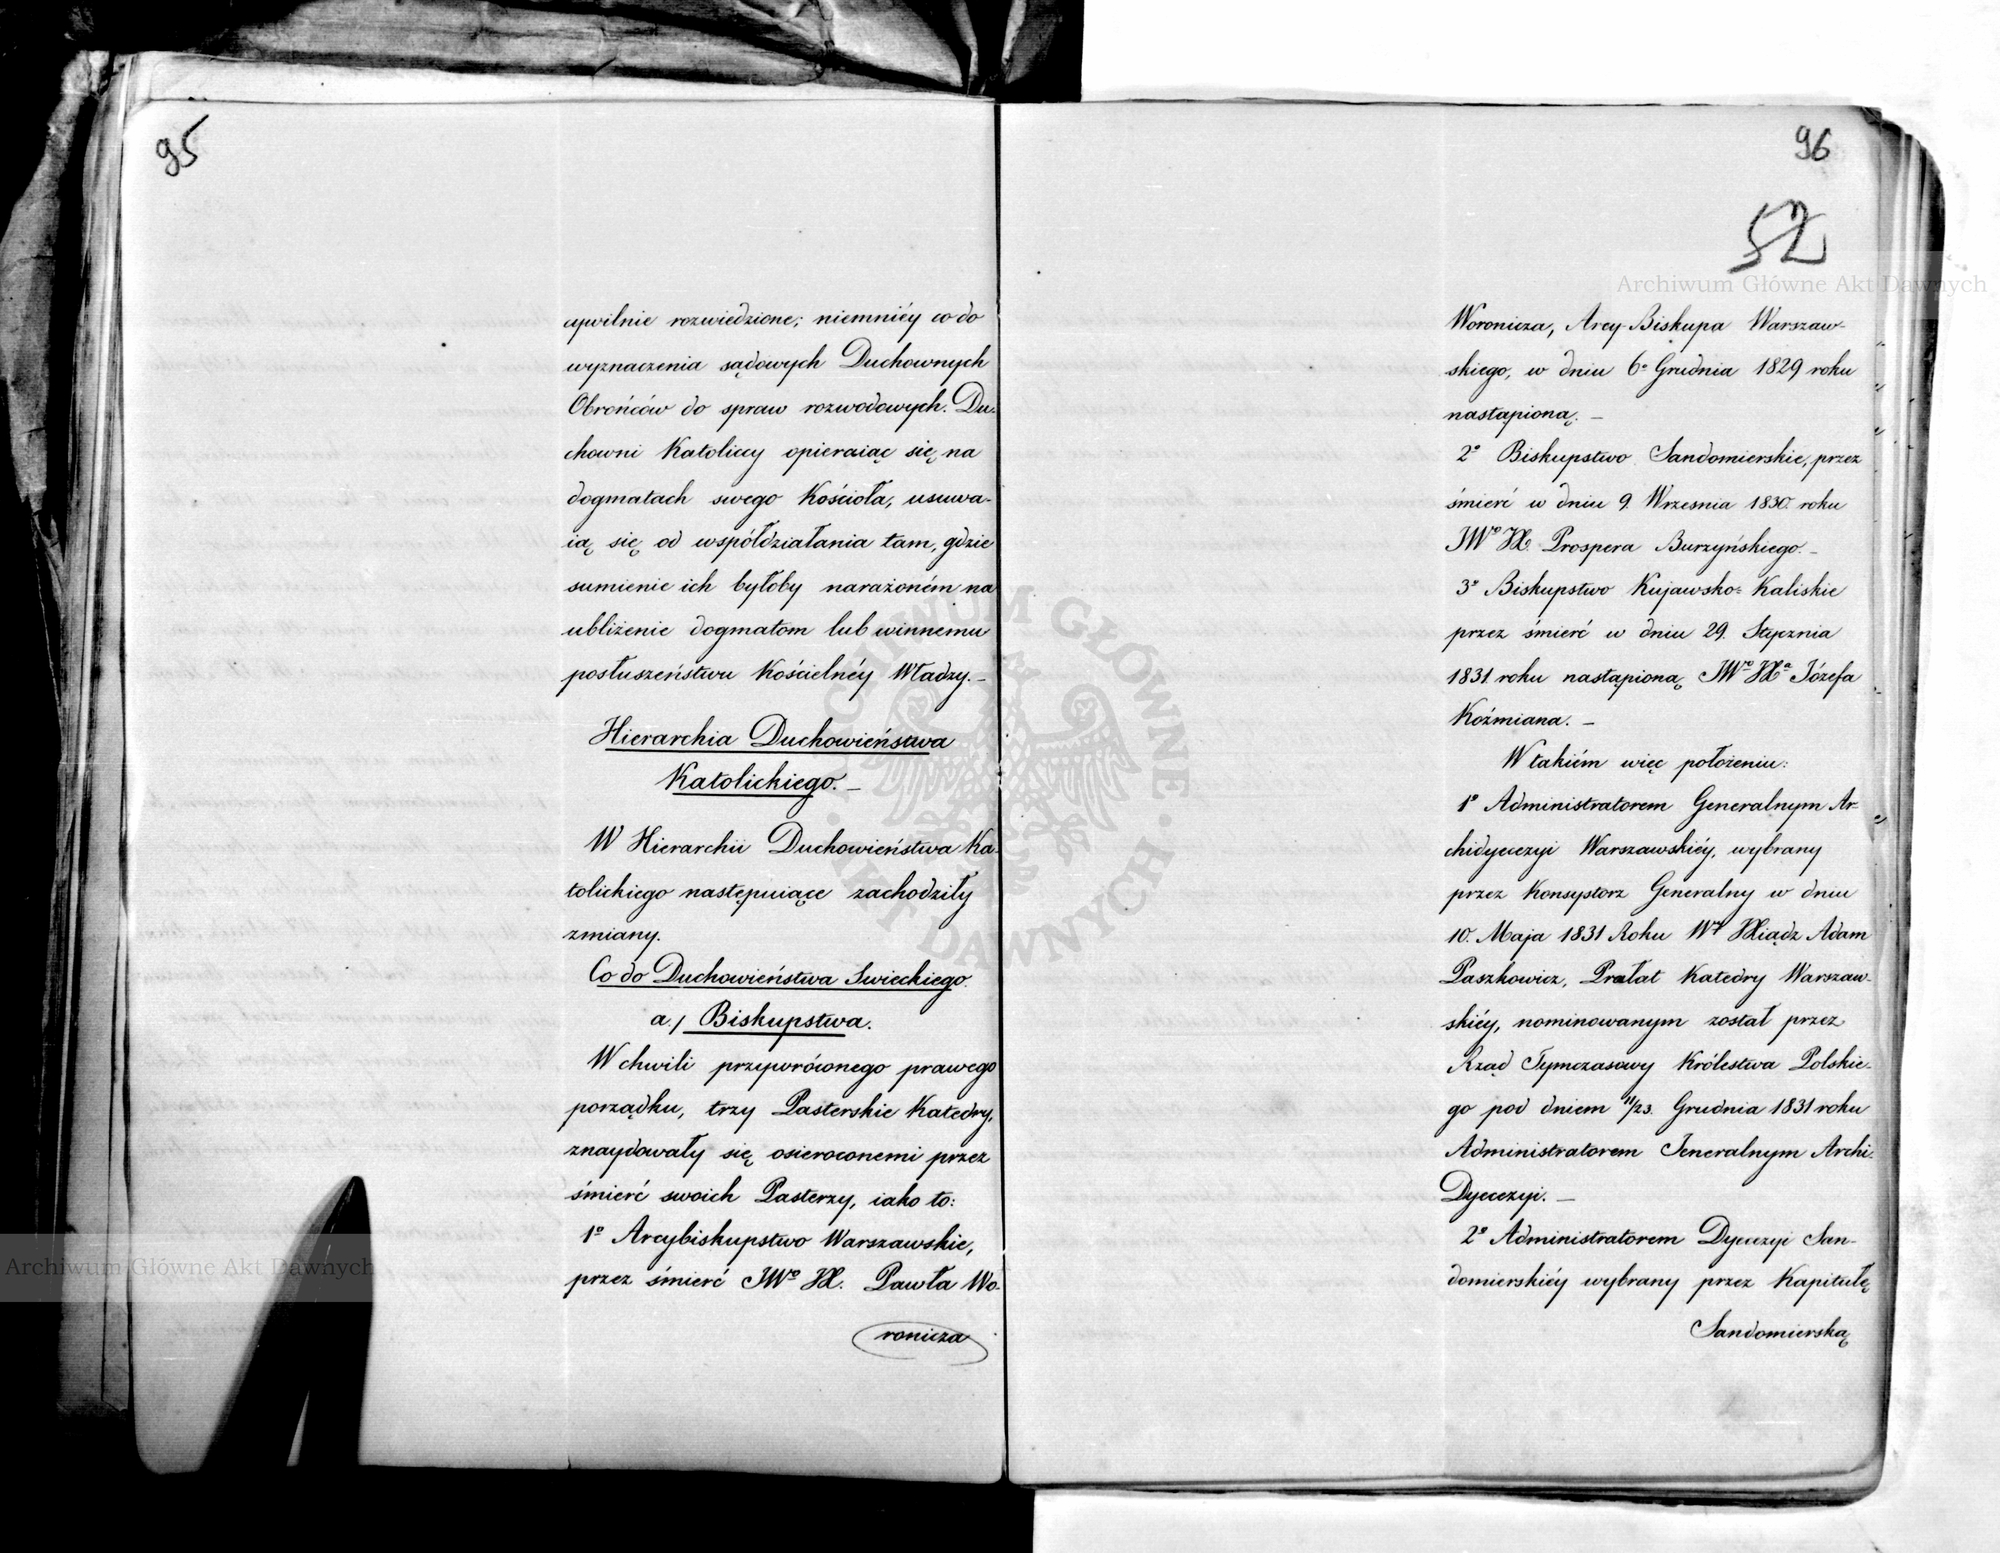 95
cywilnie rozwiedzione; niemniéy co do
wyznaczenia sądowych Duchownych
Obrońców do spraw rozwodowych. Du-
chowni Katoliccy opieraiąc się na
dogmatach swego Kościoła, usuwa-
ią się od współdziałania tam, gdzie
sumienie ich byłoby narażoném na
ubliżenie dogmatom lub winnemu
posłuszeństwu Kościelnéy Władzy. –
Hierarchia Duchowieństwa
Katolickiego. –
W Hierarchii Duchowieństwa Ka-
tolickiego następuiące zachodziły
zmiany.
Co do Duchowieństwa Swieckiego.
a./ Biskupstwa.
W chwili przywróconego prawego
porządku, trzy Pasterskie Katedry,
znaydowały się osieroconemi przez
śmierć swoich Pasterzy, iako to:
1º Arcybiskupstwo Warszawskie,
przez śmierć JWº X. Pawła Wo-
ronicza
96
52
Woronicza, Arcy-Biskupa Warszaw-
skiego, w dniu 6º Grudnia 1829 roku
nastąpioną. –
2º Biskupstwo Sandomierskie, przez
śmierć w dniu 9. Wrzesnia 1830. roku
JWº X. Prospera Burzyńskiego. –
3º Biskupstwo Kujawsko-Kaliskie
przez śmierć w dniu 29. Stycznia
1831. roku nastąpioną JWº Xª Józefa
Koźmiana. –
W takiém więc położeniu:
1º Administratorem Generalnym Ar-
chidyecezyi Warszawskiéy, wybrany
przez Konsystorz Generalny w dniu
10. Maja 1831 Roku Wy Xiądz Adam
Paszkowicz, Prałat Katedry Warszaw-
skiéy, nominowanym został przez
Rząd Tymczasowy Królestwa Polskie-
go pod dniem 11/23. Grudnia 1831 roku
Administratorem Jeneralnym Archi-
Dyecezyi. –
2º Administratorem Dyecezyi San-
domierskiéy wybrany przez Kapitułę
Sandomierską
Archiwum Główne Akt Dawnych
Archiwum Główne Akt Dawnych
ARCHIWUM GŁÓWNE · AKT DAWNYCH ·